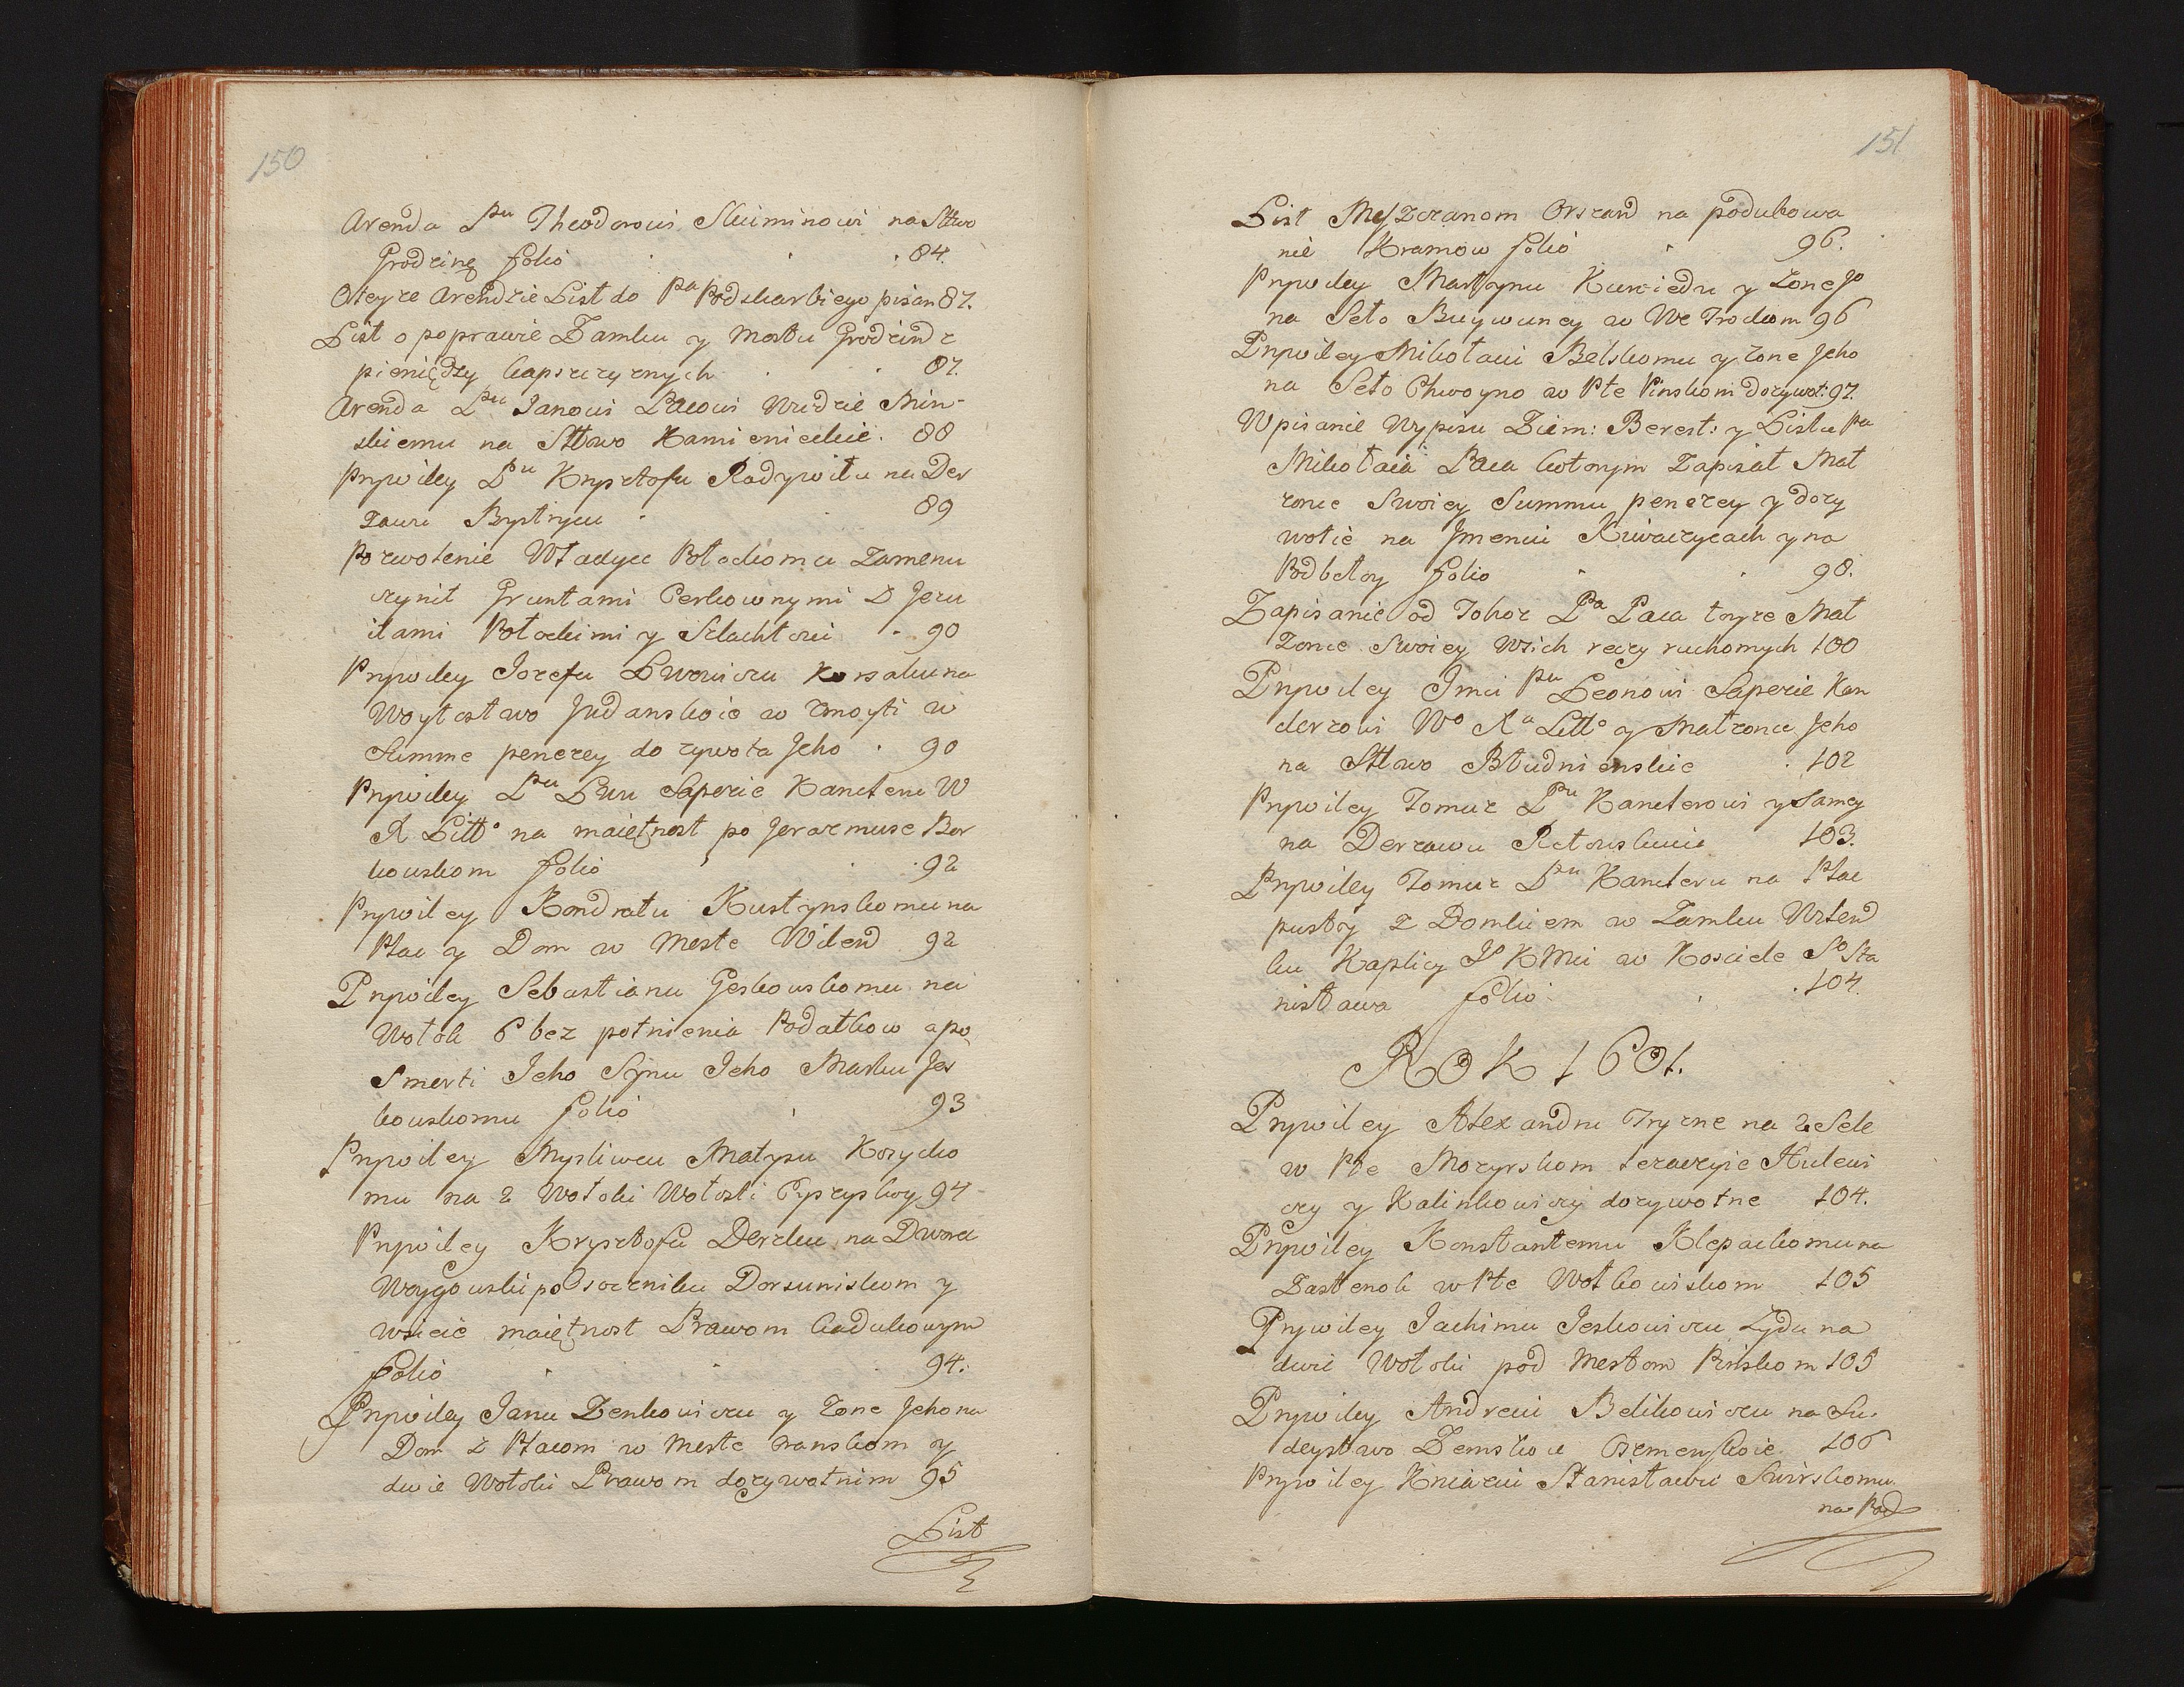 150
Arenda Pu Theodorowi Skuminowi na Sttwo
Grodzinę folio 84.
Oteyze Arendzie List do Pa Podskarbiego pisan 87.
List o poprawie Zamku y Mostu Grodzind z
pieniędzy kapszczyznych 87.
Arenda Pu Janowi Pacowi Min-
skiemu na Sttwo Kamienieckie. 88
Prywiley Pu Krysztofu Radywiłu na Der
zawu Bystrycu 89
Pozwolenie Władyce Połockomu Zamenu
czynit Gruntami Cerkownymi z Jezu
itami Połockimi y Szlachtoiu 90
Prywiley Jozefu Lwowiczu Korsaku na
Woytostwo Judanskoie w Zmoyti w
Summe penezey do zywota Jeho 90
Prywiley Pu Lwu Sapezie Kancleru W
X Litto na maiętnost po Jerazmuse Bor
kouskom folio 92
Prywiley Kondratu Kustynskomu na
Plac y Dom w Meste Wilend 92
Prywiley Sebastianu Jeskouskomu na
Wołok 6 bez połnienia Podatkow a po
Smerti Jeho Synu Jeho Marku Jes
kouskomu folio 93
Prywiley Mysliwcu Matysu Kozycko
mu na 2 Wołoki Wołosti Przypskoy 94
Prywiley Krysztofu Derzku na Dworec
Woygouski po Osoczniku Dorsuniskom y
wsieie maiętnost Prawom kadukowym
folio 94.
Prywiley Janu Zenkowiczu y Zone Jeho na
Dom z Placom w Meste Minskom y
dwie Wołoki Prawom dozywotnim 95
List
151
List Meszczanom Orszand na podubowa
nie Kramow folio 96.
Prywiley Martynu Kurziedu y Zone Jo
na Seło Buywuncy w We Trockom 96
Prywiley Mikołaiu Belskomu y Zone Jeho
na Seło Chwoyno w Pte Pinskom dozywot: 97.
Wpisanie Wypisu Ziem: Berest: y Listu Pa
Mikołaia Paca kotorym Zapisał Mał
zonce Swoiey Summu penezey y dozy
wotie na Jmeniu Kiwaczycach y na
Podbeloy folio 98.
Zapisanie od Tohoz Pa Paca toyze Mał
zonce Swoiey Wsich reczy ruchomych 100
Prywiley Jmci Pu Leonowi Sapezie Kan
clerzowi Wo Xa Litto y Małzonce Jeho
na Sttwo Błudnienskie 102
Prywiley Tomuz Pu Kanclerowi y Samey
na Derzawu Retowskuiu 103.
Prywiley Tomuz Pu Kancleru na Plac
pustoy z Domkiem w Zamku Wilend
ku Kaplicy Jo K Mci w Kosciele So Sta
nisława folio 104.
ROK 1601.
Prywiley Alexandru Tryzne na 2 Sele
w Pte Mozyrskom lezaczyie Hulewi
czy y Kalinkowiczy dozywotne 104.
Prywiley Konstantemu Klepackomu na
Zastenok w Pte Wołkowiskom 105
Prywiley Jachimu Jeskowiczu Zydu na
dwie Wołoki pod Mestom Pinskom 105
Prywiley Andreiu Belikowiczu na Su.
deystwo Zemskoie Oszmenskoie 106
Prywiley Kniaziu Stanisławu Swirskomu
na Pod